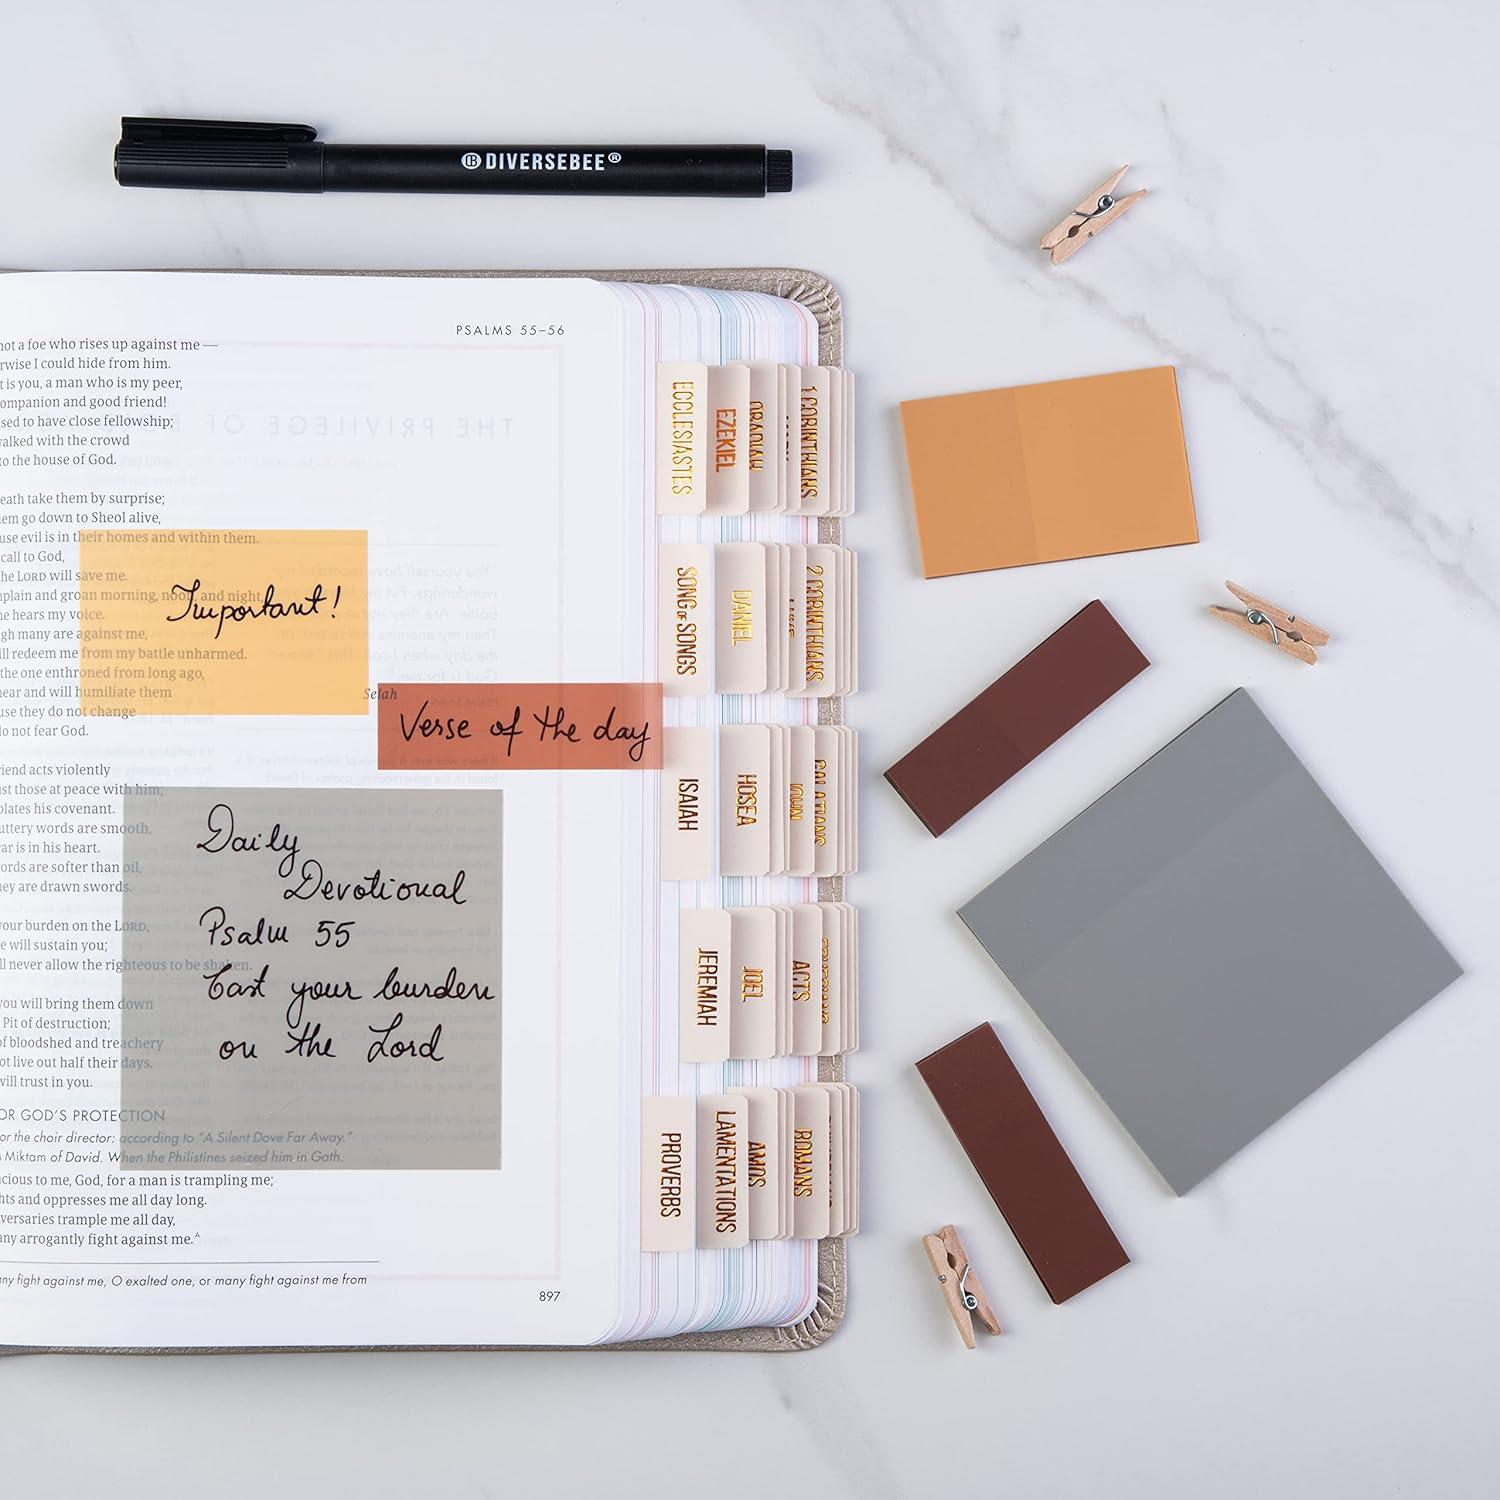 DIVERSEBEE®
PSALMS 55–56
not a foe who rises up against me —
rwise I could hide from him.
t is you, a man who is my peer,
ompanion and good friend!
sed to have close fellowship;
alked with the crowd
to the house of God.
eath take them by surprise;
em go down to Sheol alive,
use evil is in their homes and within them.
call to God,
he LORD will save me.
plain and groan morning, noon, and night,
he hears my voice.
gh many are against me,
ill redeem me from my battle unharmed.
the one enthroned from long ago,
hear and will humiliate them
Selah
use they do not change
do not fear God.
riend acts violently
nst those at peace with him;
olates his covenant.
uttery words are smooth,
ar is in his heart.
ords are softer than oil,
hey are drawn swords.
your burden on the LORD,
e will sustain you;
ll never allow the righteous to be shaken.
you will bring them down
Pit of destruction;
of bloodshed and treachery
ot live out half their days.
will trust in you.
OR GOD'S PROTECTION
or the choir director: according to "A Silent Dove Far Away."
Miktam of David. When the Philistines seized him in Gath.
cious to me, God, for a man is trampling me;
hts and oppresses me all day long.
versaries trample me all day,
any arrogantly fight against me.A
ny fight against me, O exalted one, or many fight against me from
897
Important!
Verse of the day
Daily
Devotional
Psalm 55
Cast your burden
on the Lord
ECCLESIASTES
EZEKIEL
OBADIAH
1 CORINTHIANS
SONG OF SONGS
DANIEL
LUKE
2 CORINTHIANS
ISAIAH
HOSEA
JOHN
GALATIANS
JEREMIAH
JOEL
ACTS
PROVERBS
LAMENTATIONS
AMOS
ROMANS